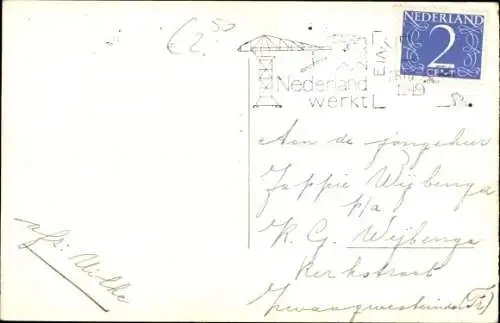 €2,50
Nederland
werkt
EIN
1949
NEDERLAND
2
CENT
Aan de jongeheer
Jappie Wijbenga
p/a
K. G. Wijbenga
Kerkstraat
Zwaagwesteinde (Fr)
afz: Wilke